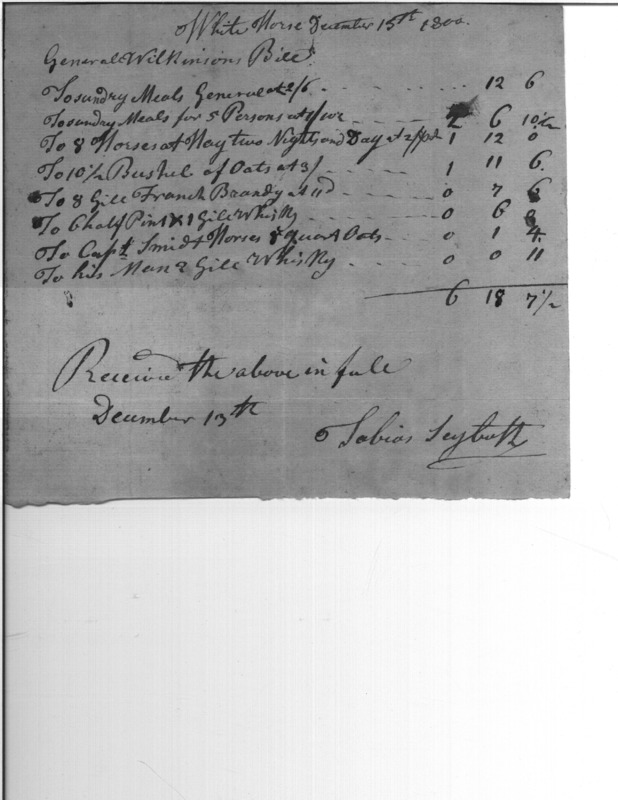 White Horse December 15th 1800.
General Wilkinsons Bill
To sundry Meals General at 2/6 12 6
To sundry Meals for 5 Persons at 2 6 10 1/2
To 8 Horses at Hay two Nights and Day at 1 12 0
To 10 1/2 Bushel of Oats at 3/ 1 11 6
To 8 Gill French Brandy at 11d 0 7 6
To 6 half Pint & 1 Gill Whisky 0 6 8
To Capt. Smidt Horses 8 quart Oats 0 1 4
To his Man 2 Gill Whisky 0 0 11
6 18 7 1/2
Receivd the above in full
December 15th
Tobias Seybolt